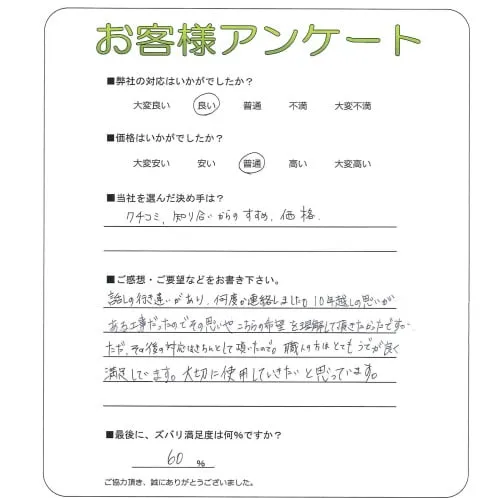 お客様アンケート
■弊社の対応はいかがでしたか？
大変良い 良い 普通 不満 大変不満
■価格はいかがでしたか？
大変安い 安い 普通 高い 大変高い
■当社を選んだ決め手は？
クチコミ、知り合いからのすすめ、価格、
■ご感想・ご要望などをお書き下さい。
話しの行き違いがあり、何度か連絡しました。10年越しの思いが
ある工事だったのでその思いやこちらの希望を理解して頂きたかったですが。
ただ、その後の対応はきちんとして頂いたので。職人の方はとてもうでが良く
満足しています。大切に使用していきたいと思っています。
■最後に、ズバリ満足度は何％ですか？
60 ％
ご協力頂き、誠にありがとうございました。